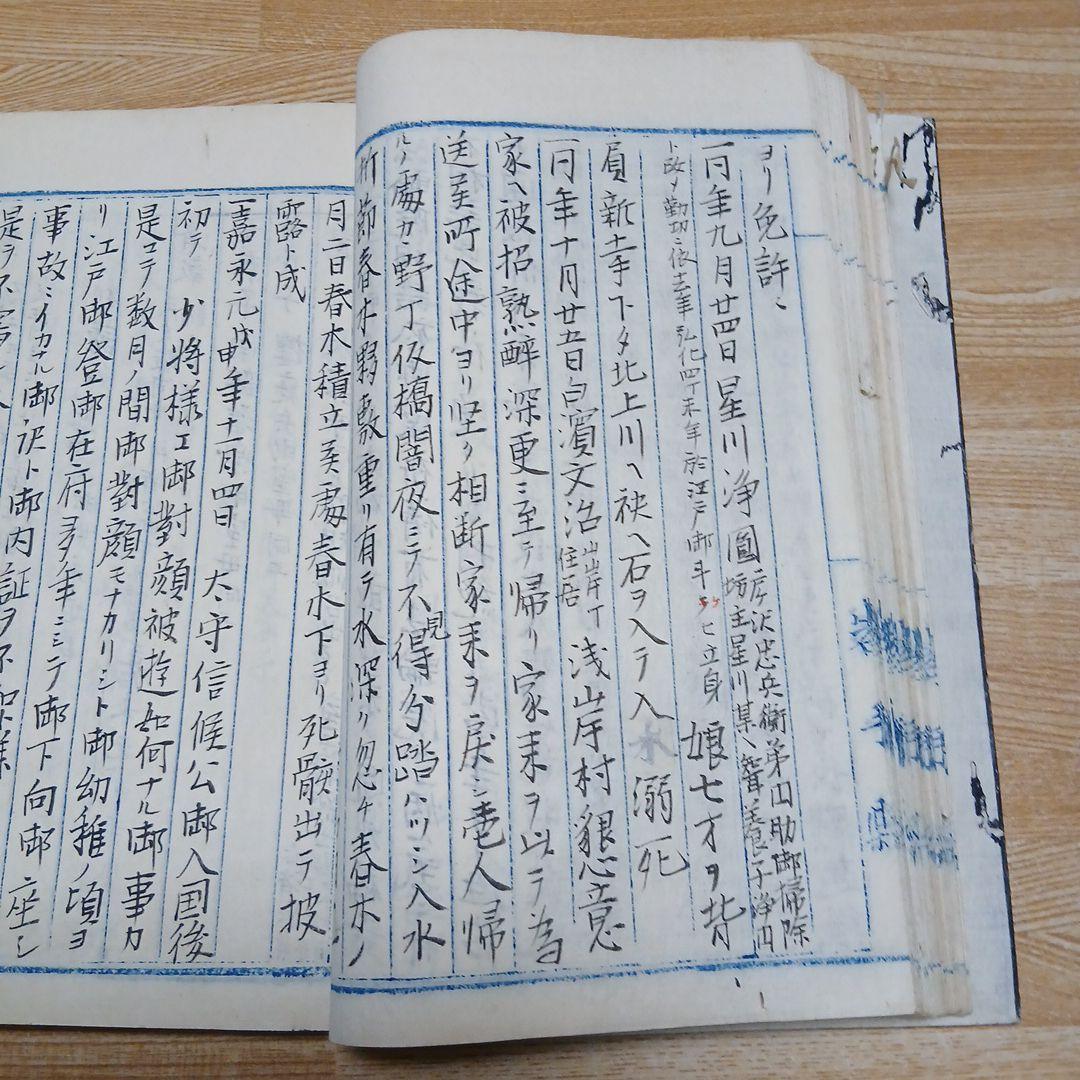 ヨリ免許ミ
一同年九月廿四日星川浄圓戸沢忠兵衛弟四助御掃除
坊主星川某ヘ聟養子浄円
ト改メ勤功ニ依去年弘化四丁未年於江戸御斗ヒ立身娘七才ヲ背
負新土手下タ北上川ヘ袂ヘ石ヲ入テ入水溺死
一同年十月廿五日白濱文治山岸丁住居浅岸村懇意
家ヘ被招熟酔深更ニ至テ帰リ家来ヲ以テ為
送候所途中ヨリ堅ク相断家来ヲ戻シ壱人帰
ルノ處カニ野丁仮橋闇夜ニテ不見得分踏ハツシ入水
折節春木夥敷重リ有テ水深ク忽チ春木ノ
月二日春木積立候處春木下ヨリ死骸出テ披
露ト成
一嘉永元戊申年十一月四日 太守信候公御入国後
初テ 少将様エ御對顔被遊如何ナル御事カ
是エテ数月ノ間御對顔モナカリシト御幼稚ノ頃ヨ
リ江戸御登御在府ヨ多ノ年ニミテ御下向御座シ
事故ニイカナル御訳ト御内証ヲ不
是ヲ不